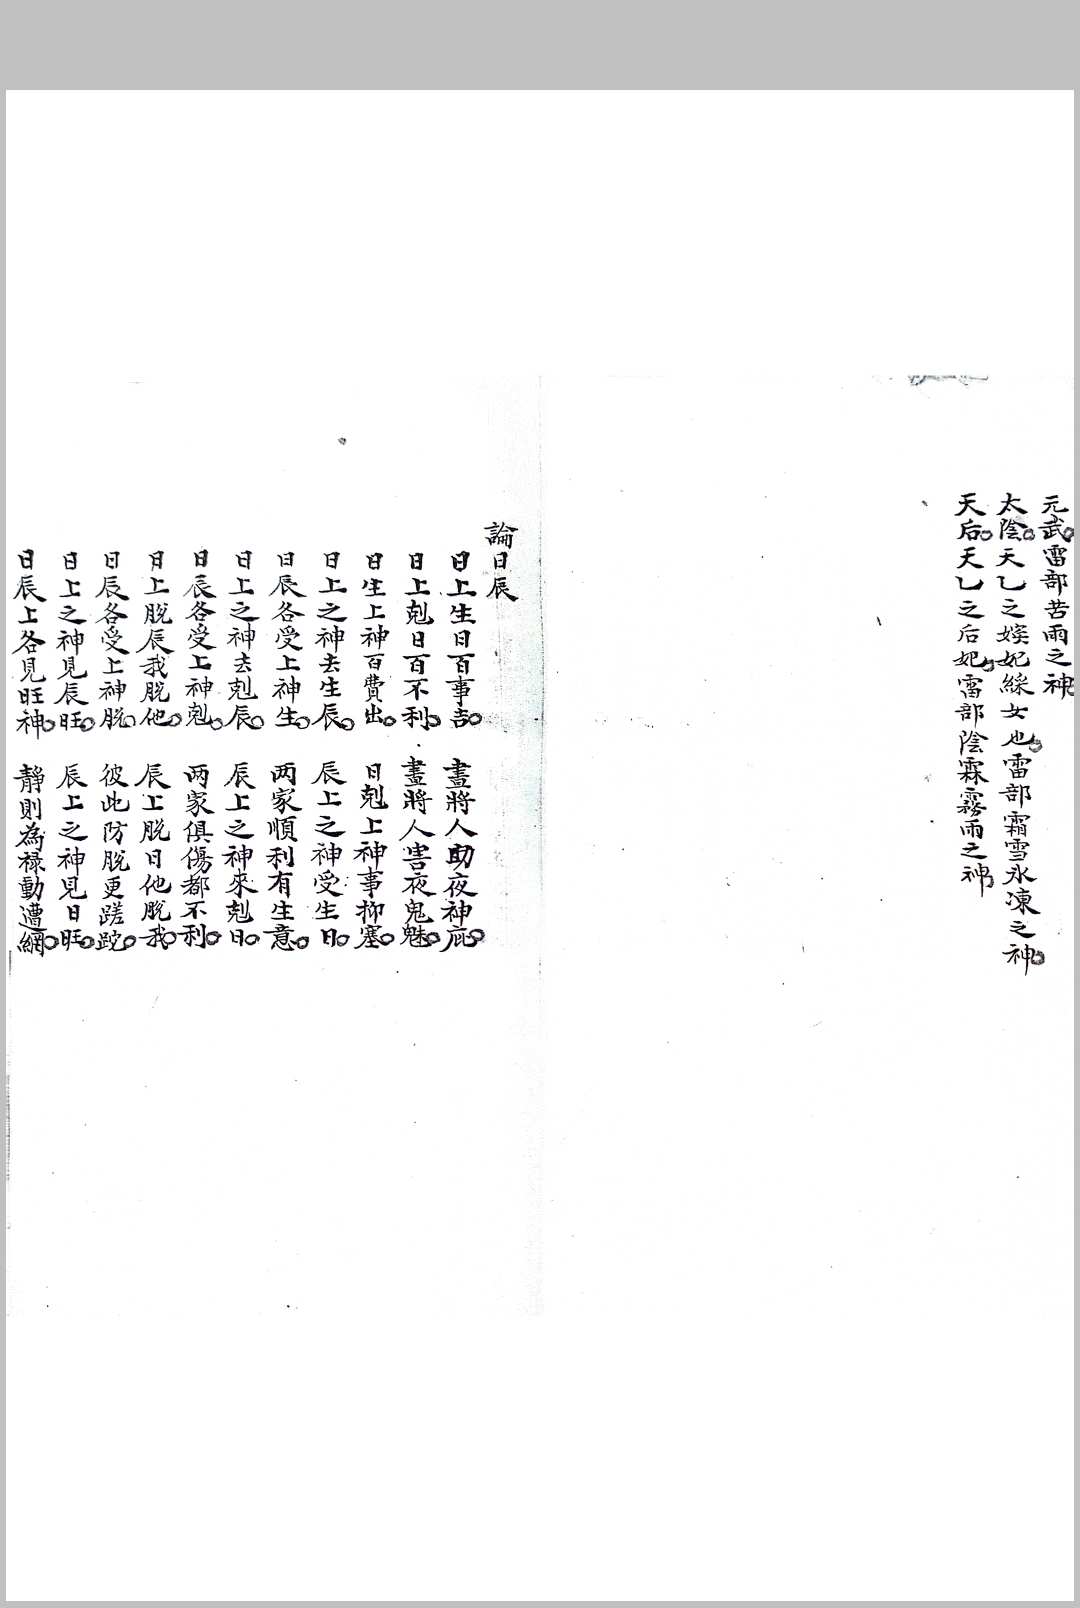 元武。雷部苦雨之神。
太陰。天乙之嬪妃綵女也。雷部霜雪氷凍之神。
天后。天乙之后妃。雷部陰霖霧雨之神。
論日辰
日上生日百事吉。晝將人助夜神庇。
日上剋日百不利。晝將人害夜鬼魅。
日生上神百費出。日剋上神事抑塞。
日上之神去生辰。辰上之神受生日。
日辰各受上神生。两家順利有生意。
日上之神去剋辰。辰上之神來剋日。
日辰各受上神剋。两家俱傷都不利。
日上脫辰我脫他。辰上脫日他脫我。
日辰各受上神脫。彼此防脫更蹉跎。
日上之神見辰旺。辰上之神見日旺。
日辰上各見旺神。靜則為禄動遭網。